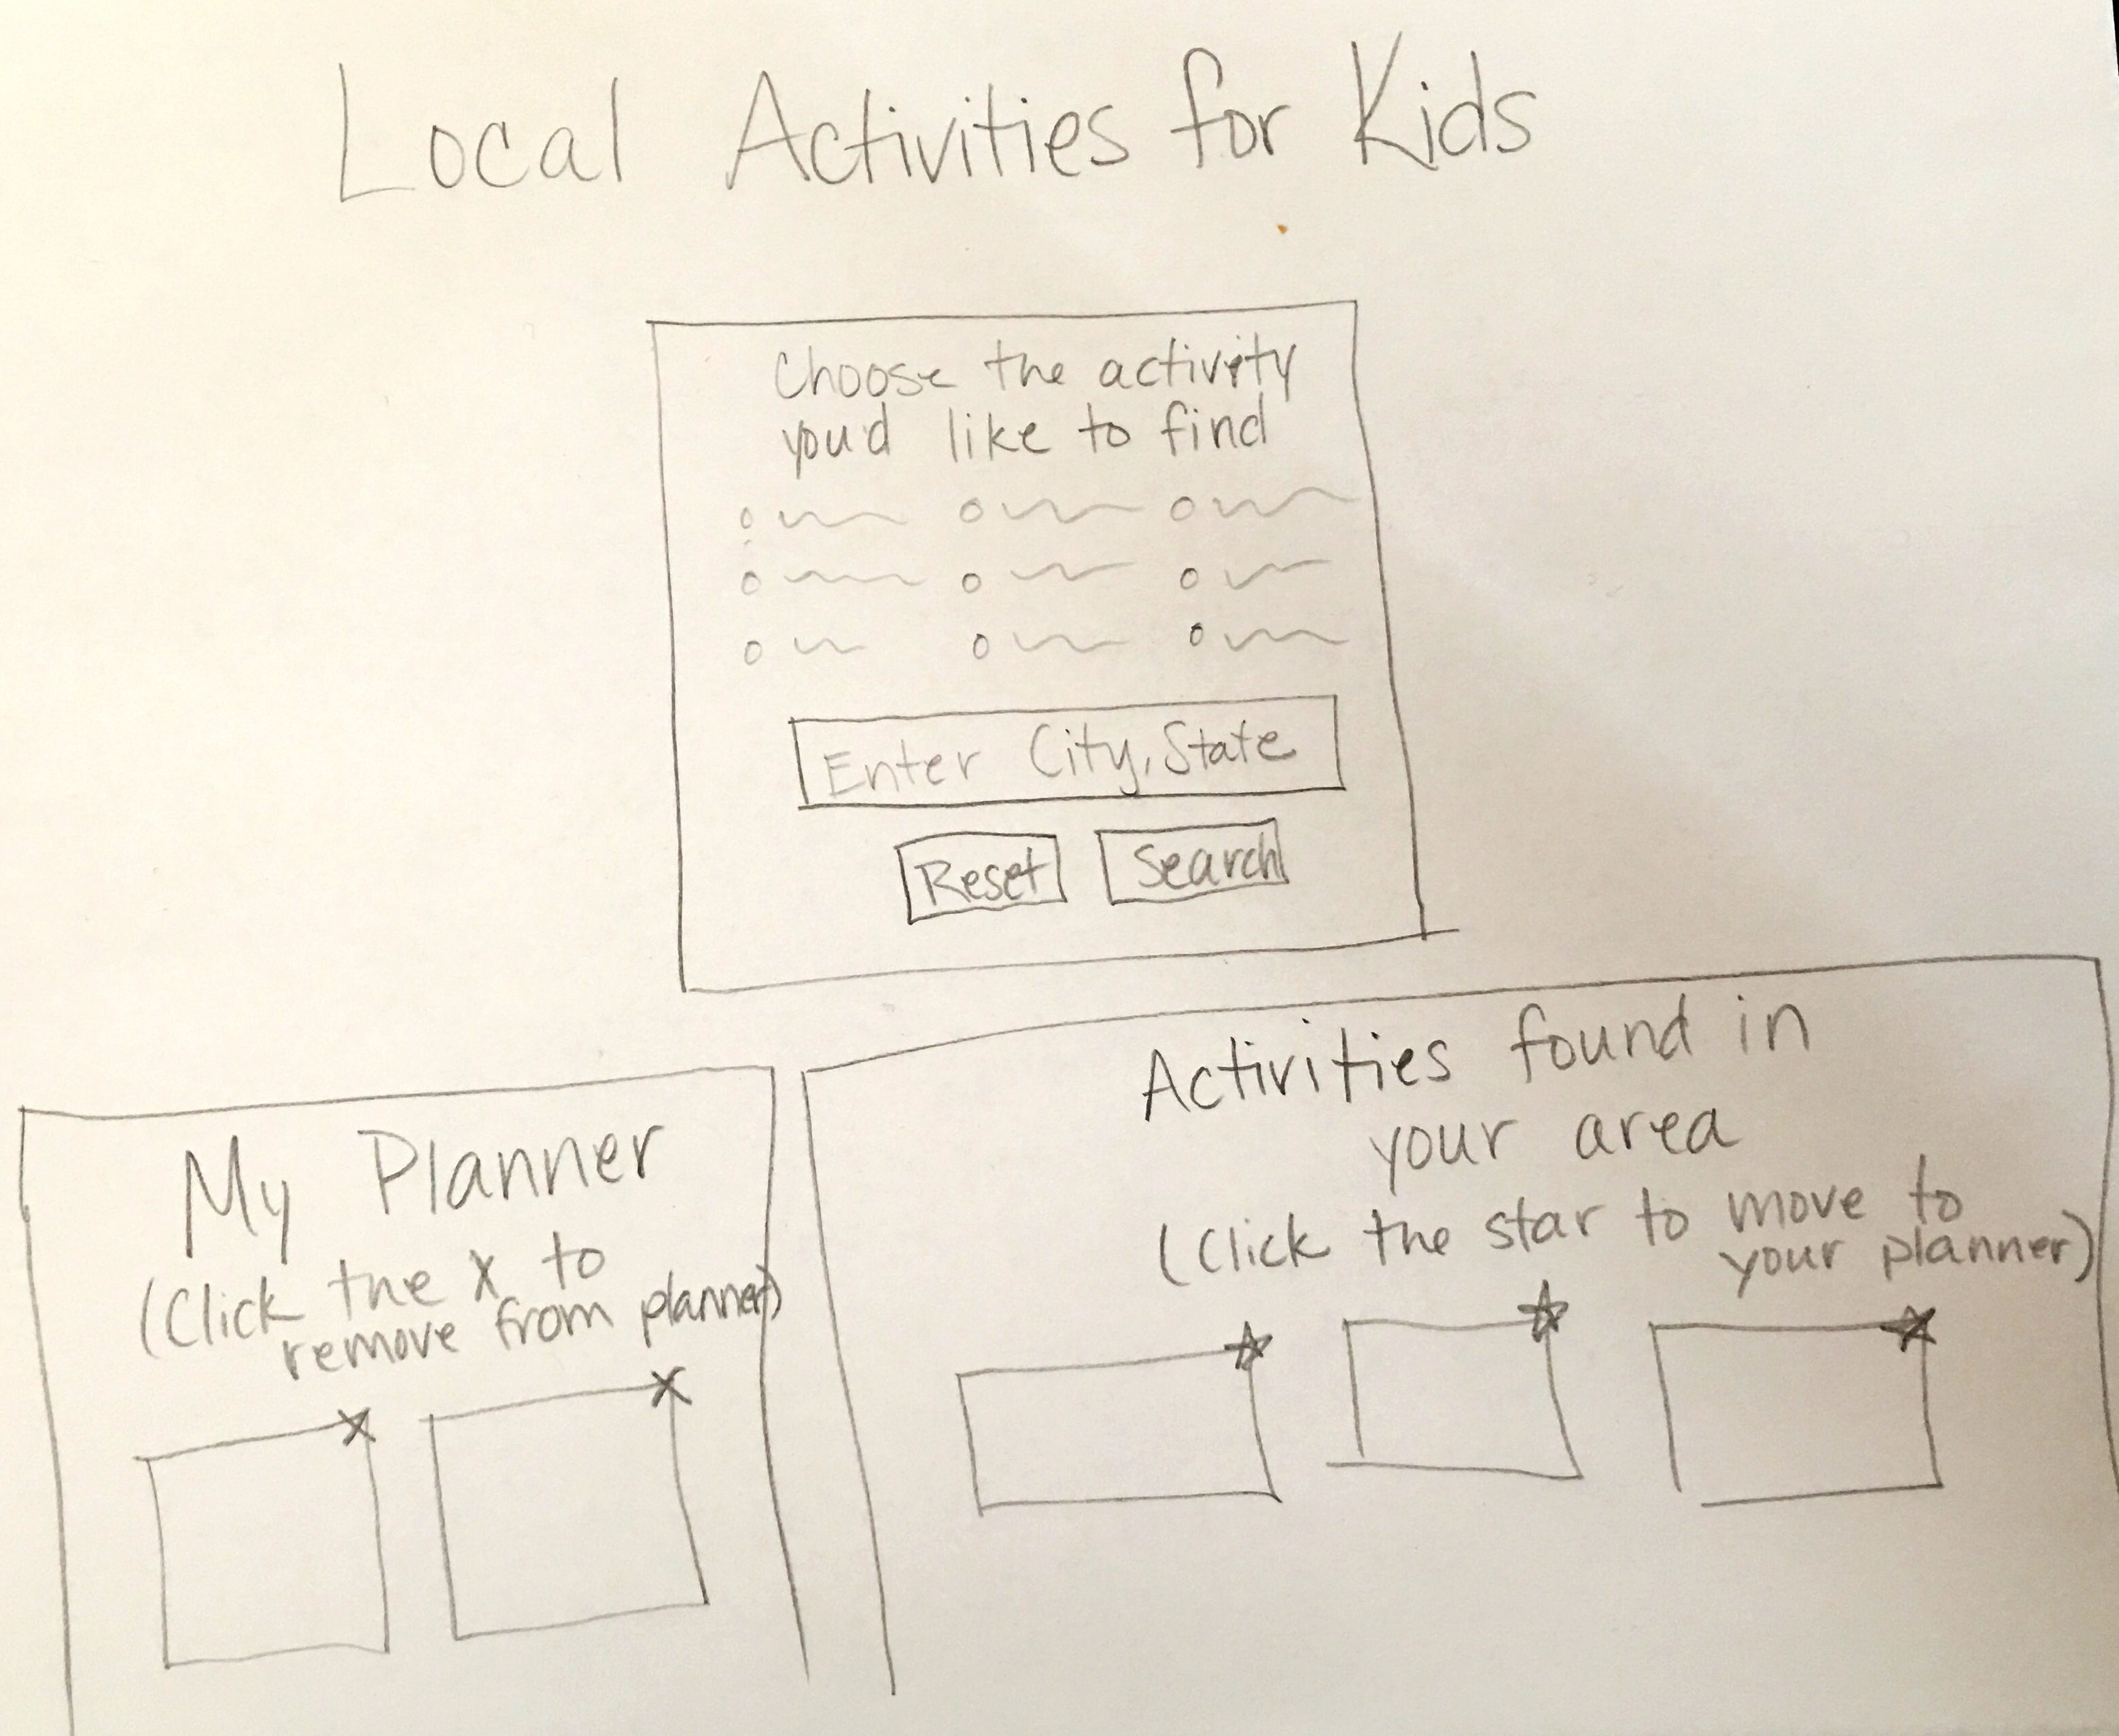 Local Activities for Kids
Choose the activity
you'd like to find
Enter City, State
Reset
Search
My Planner
(Click the X to
remove from planner)
Activities found in
your area
(Click the star to move to
your planner)